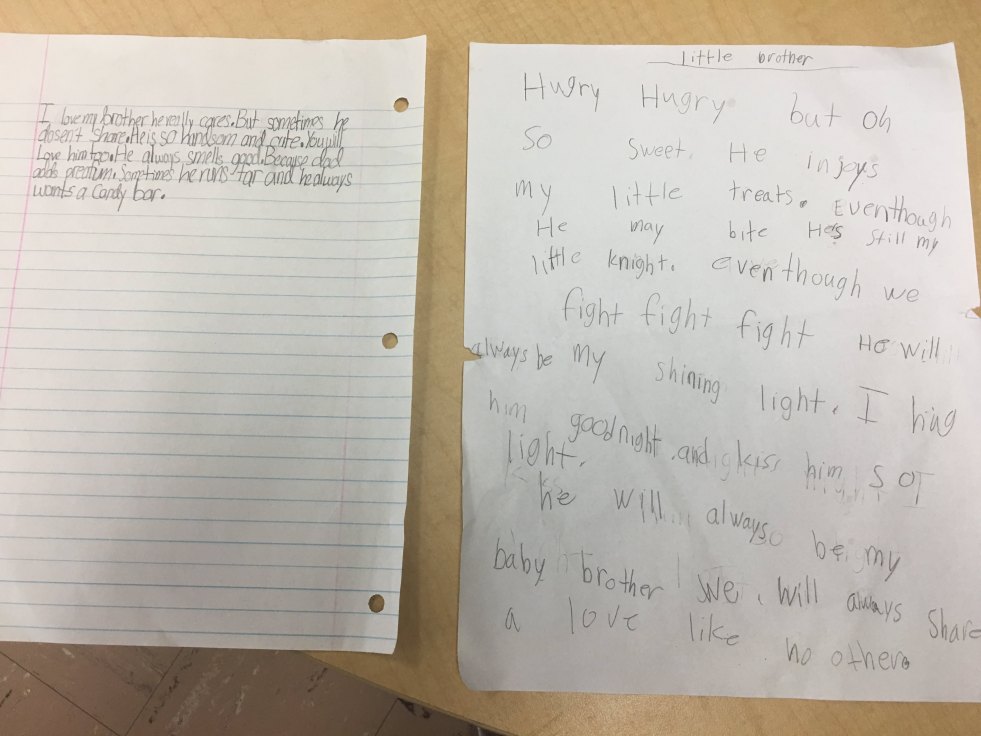 I love my brother he really cares. But sometimes he
dosen't share. He is so handsom and cute. You will
Love him too. He always smells good. Because dad
adds preatum. Sometimes he runs far and he always
wants a candy bar.
little brother
Hugry Hugry but oh
so sweet. He injoys
my little treats. Eventhough
He may bite He's still my
little knight. eventhough we
fight fight fight He will
always be my shining light. I hug
him goodnight. and kiss him S OT
light.
he will always be my
baby brother we. will always share
a love like no other